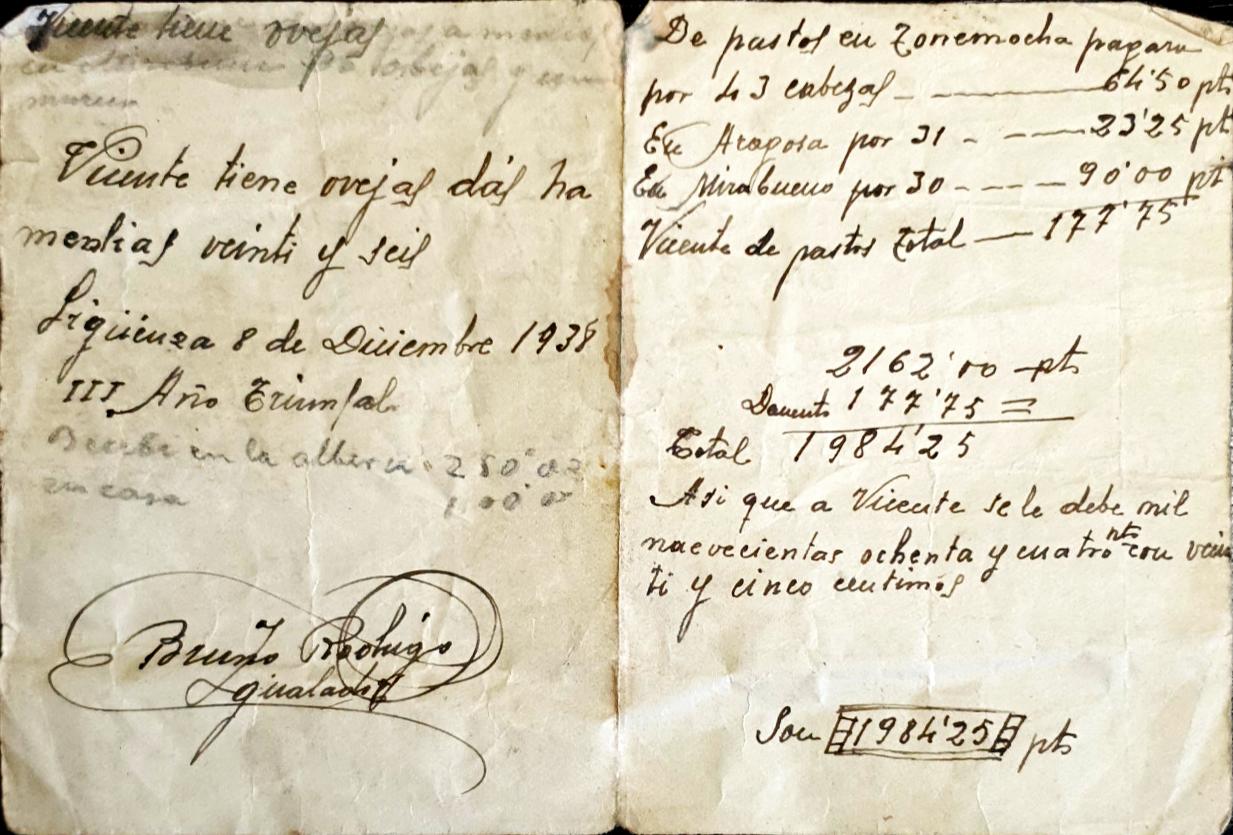 Vicente tiene ovejas
Vicente tiene ovejas dás ha
medias veinti y seis
Sigüenza 8 de Diciembre 1938
III Año Triunfal
Recibi en la
250'00
en casa 100'00
Bruno Rodrigo
Igualador
De pastos en Torremocha pagara
por 43 cabezas - ---- 64'50 pts
En Aragosa por 31 - ---- 23'25 pts
En Mirabueno por 30 ---- 90'00 pts
Vicente de pastos Total — 177'75
2162'00 pts
177'75 =
Total 1984'25
Asi que a Vicente se le debe mil
naevecientas ochenta y cuatro pts con vein
ti y cinco centimos
Son 1984'25 pts